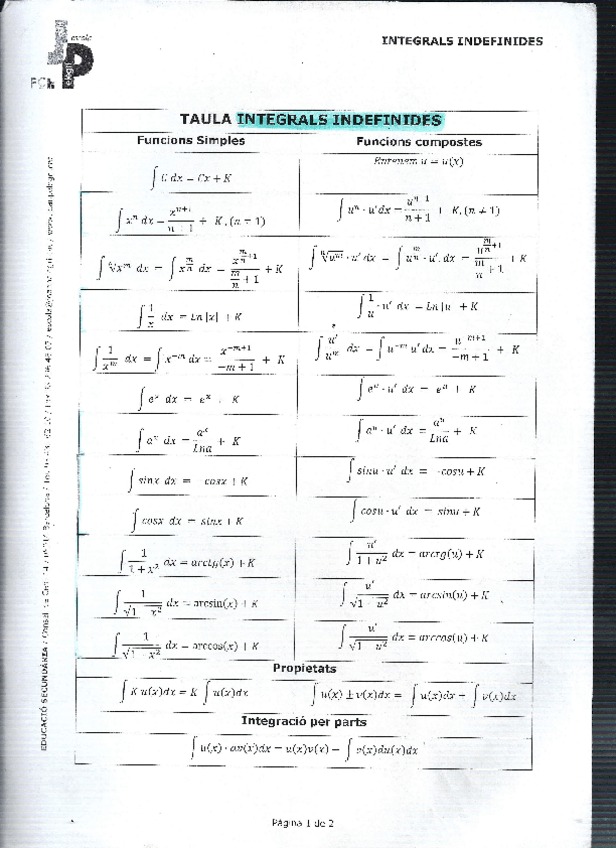 INTEGRALS INDEFINIDES
TAULA INTEGRALS INDEFINIDES
Funcions Simples
Funcions compostes
∫ C dx = Cx + K
u = u(x)
∫ xⁿ dx = xⁿ⁺¹/(n + 1) + K, (n ≠ 1)
∫ uⁿ · u' dx = uⁿ⁺¹/(n + 1) + K, (n ≠ 1)
∫ ⁿ√xᵐ dx = ∫ x^(m/n) dx = x^(m/n + 1)/(m/n + 1) + K
∫ ⁿ√uᵐ · u' dx = ∫ u^(m/n) · u' dx = u^(m/n + 1)/(m/n + 1) + K
∫ 1/x dx = Ln|x| + K
∫ 1/u · u' dx = Ln|u| + K
∫ 1/xᵐ dx = ∫ x⁻ᵐ dx = x⁻ᵐ⁺¹/(−m + 1) + K
∫ u'/uᵐ dx = ∫ u⁻ᵐ u' dx = u⁻ᵐ⁺¹/(−m + 1) + K
∫ eˣ dx = eˣ + K
∫ eᵘ · u' dx = eᵘ + K
∫ aˣ dx = aˣ/Lna + K
∫ aᵘ · u' dx = aᵘ/Lna + K
∫ sinx dx = −cosx + K
∫ sinu · u' dx = −cosu + K
∫ cosx dx = sinx + K
∫ cosu · u' dx = sinu + K
∫ 1/(1 + x²) dx = arctg(x) + K
∫ u'/(1 + u²) dx = arctg(u) + K
∫ 1/√(1 − x²) dx = arcsin(x) + K
∫ u'/√(1 − u²) dx = arcsin(u) + K
∫ 1/√(1 − x²) dx = arccos(x) + K
∫ u'/√(1 − u²) dx = arccos(u) + K
Propietats
∫ K u(x)dx = K ∫ u(x)dx
∫ u(x) ± v(x)dx = ∫ u(x)dx ± ∫ v(x)dx
Integració per parts
∫ u(x) · dv(x)dx = u(x)v(x) − ∫ v(x)du(x)dx
Pàgina 1 de 2
EDUCACIÓ SECUNDÀRIA